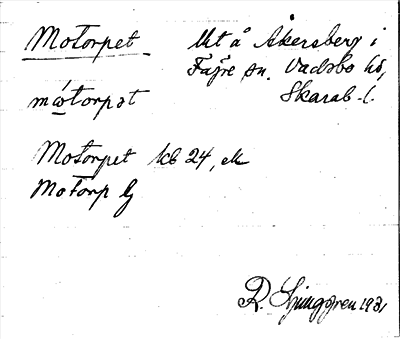 Motorpet
Mt å Åkersberg i
Fägre sn. Vadsbo hd,
Skarab. l.
mωtorpət
Motorpet kb 24, ek
Motorp lj
R. Ljunggren 1931